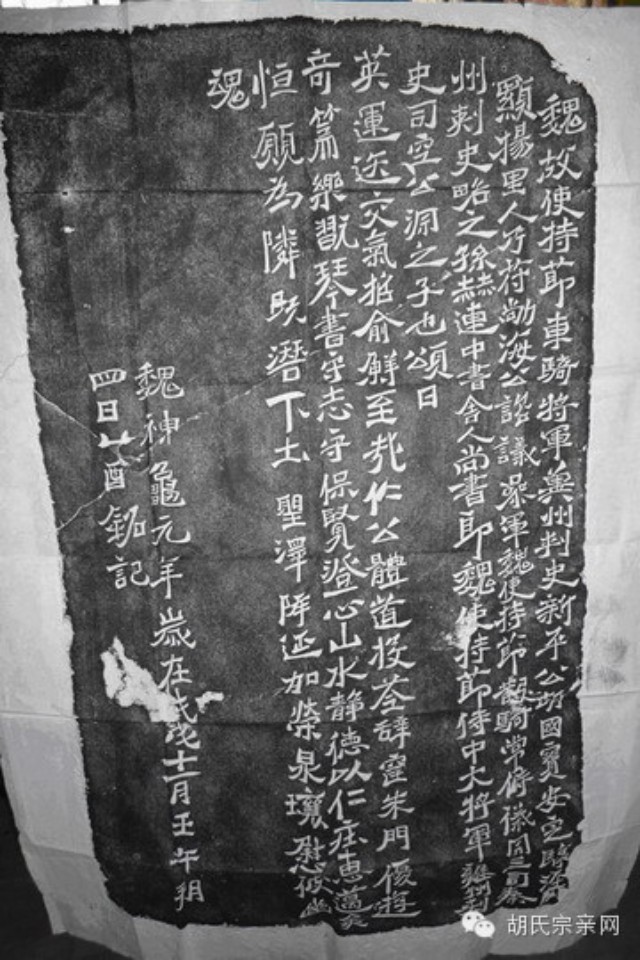 魏故使持節車騎將軍冀州刺史新平公胡國寶安定臨涇
顯揚里人乃苻勃海公諮議參軍魏使持節散騎常侍儀同三司秦
州刺史略之孫赫連中書舍人尚書郎魏使持節侍中大將軍雍州刺
史司空公洞之子也頌曰
英運迩灾氣招俞鮮至哉仁公體道投荃辭窗朱門優
奇篇樂翫琴書守志守保賢登心山水靜德以仁
恒願為隣既潛下土聖澤降延加榮泉壤慰彼幽
魂
魏神龜元年歲在戊戌十二月壬午朔
四日乙酉銘記
胡氏宗亲网